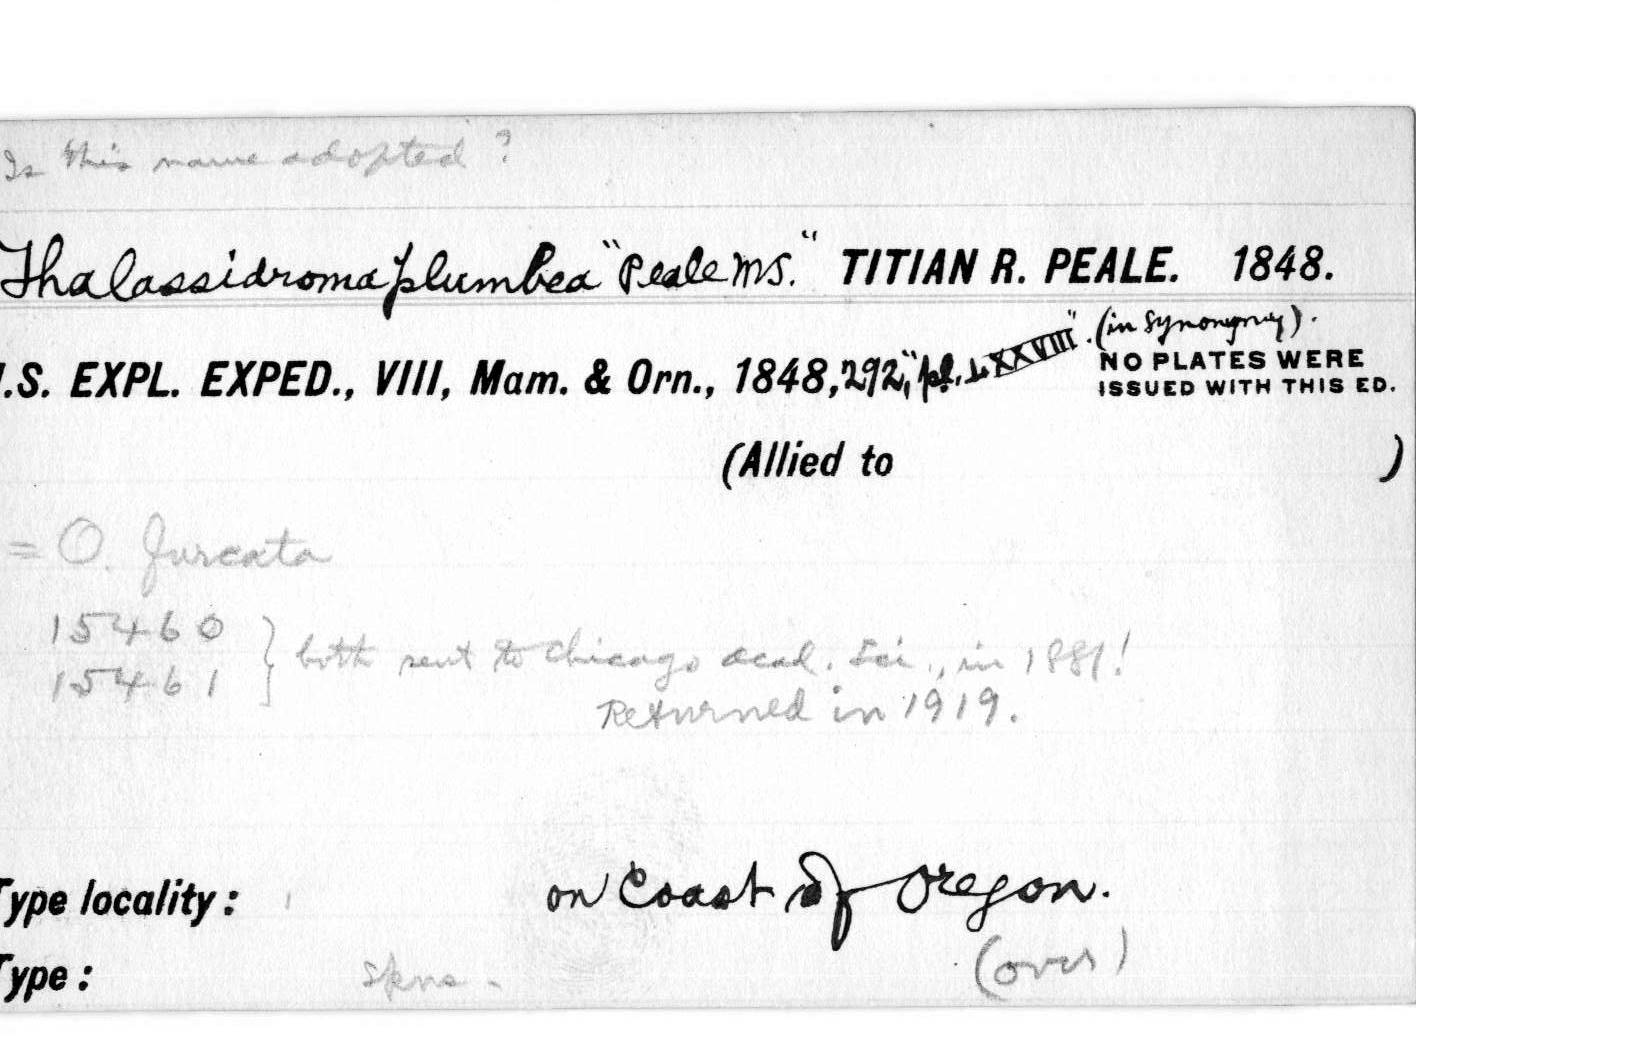 Is this name adopted?
Thalassidroma plumbea "Peale MS." TITIAN R. PEALE. 1848.
(in synonymy).
.S. EXPL. EXPED., VIII, Mam. & Orn., 1848, 292, "pl. XXVIII".
NO PLATES WERE
ISSUED WITH THIS ED.
(Allied to )
= O. furcata
15460
15461 } both sent to Chicago Acad. Sci., in 1881!
Returned in 1919.
Type locality: on Coast of Oregon.
Type: spns. (over)